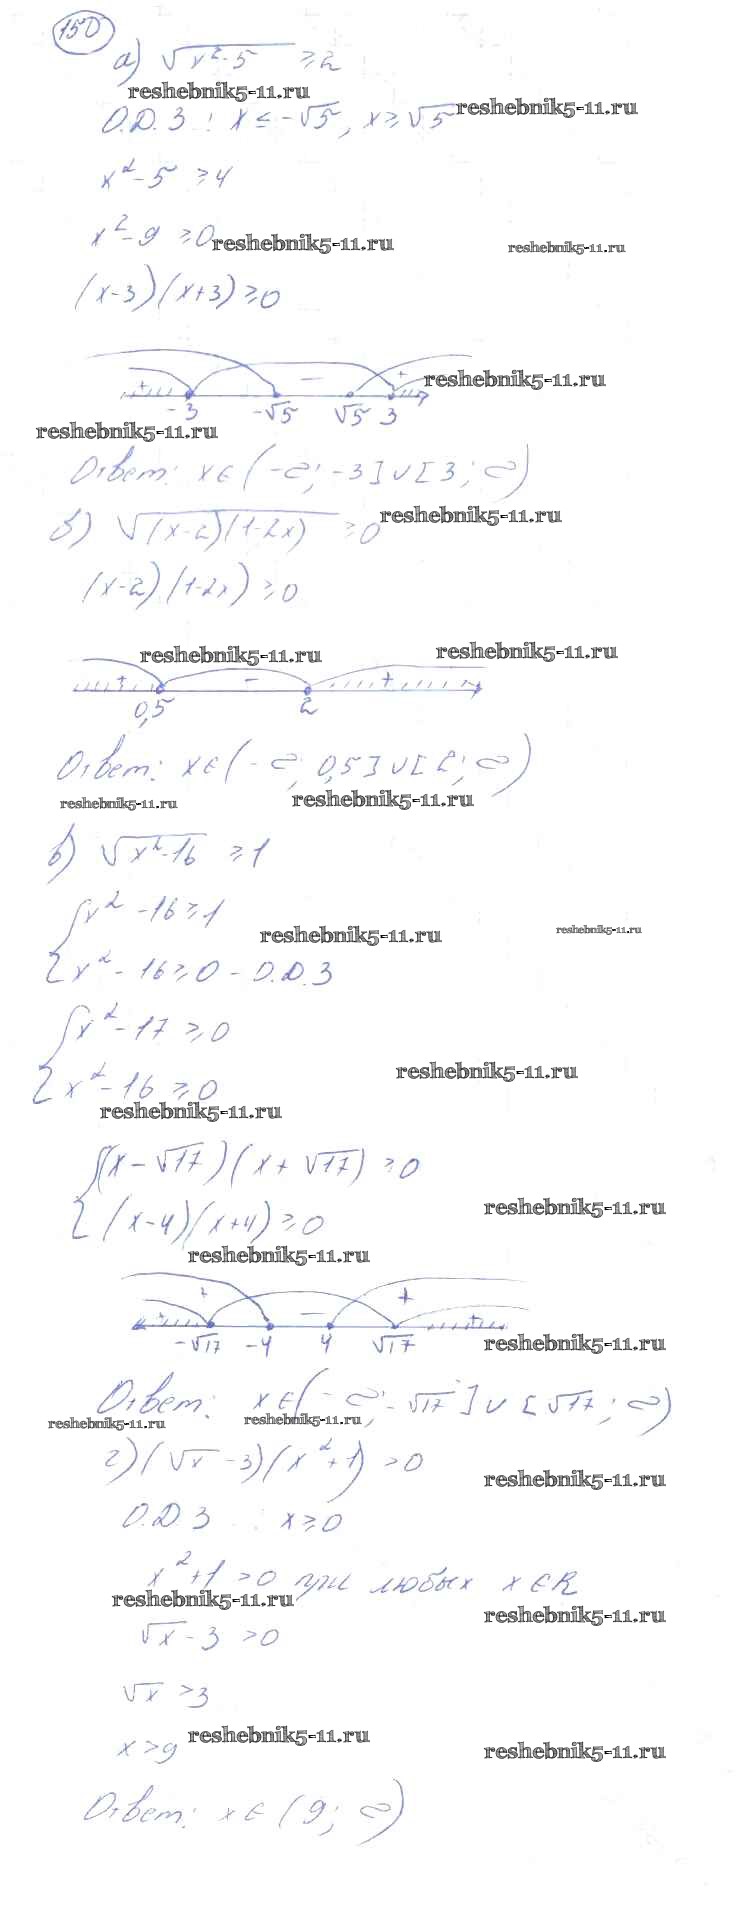 150
а) √(x²-5) ≥2
reshebnik5-11.ru
О.Д.З : x ≤ -√5, x ≥ √5 reshebnik5-11.ru
x²-5 ≥4
x²-9 ≥0 reshebnik5-11.ru reshebnik5-11.ru
(x-3)(x+3) ≥0
+ − + reshebnik5-11.ru
-3 -√5 √5 3
reshebnik5-11.ru
Ответ: x∈(-∞; -3]∪[3; ∞)
б) √((x-2)(1-2x)) ≥0 reshebnik5-11.ru
(x-2)(1-2x) ≥0
reshebnik5-11.ru reshebnik5-11.ru
+ − +
0,5 2
Ответ: x∈(-∞; 0,5]∪[2; ∞)
reshebnik5-11.ru reshebnik5-11.ru
в) √(x²-16) ≥1
{ x²-16≥1
reshebnik5-11.ru reshebnik5-11.ru
x²-16≥0 - О.Д.З
{ x²-17 ≥0
x²-16 ≥0 reshebnik5-11.ru
reshebnik5-11.ru
{ (x-√17)(x+√17) ≥0
(x-4)(x+4) ≥0 reshebnik5-11.ru
reshebnik5-11.ru
+ − +
+ +
-√17 -4 4 √17 reshebnik5-11.ru
Ответ: x∈(-∞; -√17]∪[√17; ∞)
reshebnik5-11.ru reshebnik5-11.ru
г) (√x -3)(x²+1) >0 reshebnik5-11.ru
О.Д.З : x≥0
x²+1>0 при любых x∈R
reshebnik5-11.ru reshebnik5-11.ru
√x -3 >0
√x >3
x>9 reshebnik5-11.ru reshebnik5-11.ru
Ответ: x∈(9; ∞)